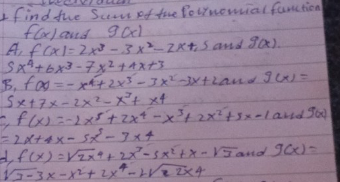 find the Sum of the Polynomial function
f(x) and g(x)
A, f(x) = 2x³ - 3x² - 2x + 5 and g(x)
5x⁴ + 6x³ - 7x² + 4x + 3
B, f(x) = -x⁴ + 2x³ - 3x² - 3x + 2 and g(x) =
5x + 7x - 2x² - x³ + x4
f(x) = -2x⁵ + 2x⁴ - x³ + 2x² + 5x - 1 and g(x)
= 2x + 4x - 5x³ - 3x4
f(x) = √2x⁴ + 2x³ - 3x² + x - √3 and g(x) =
√3 - 3x - x² + 2x⁴